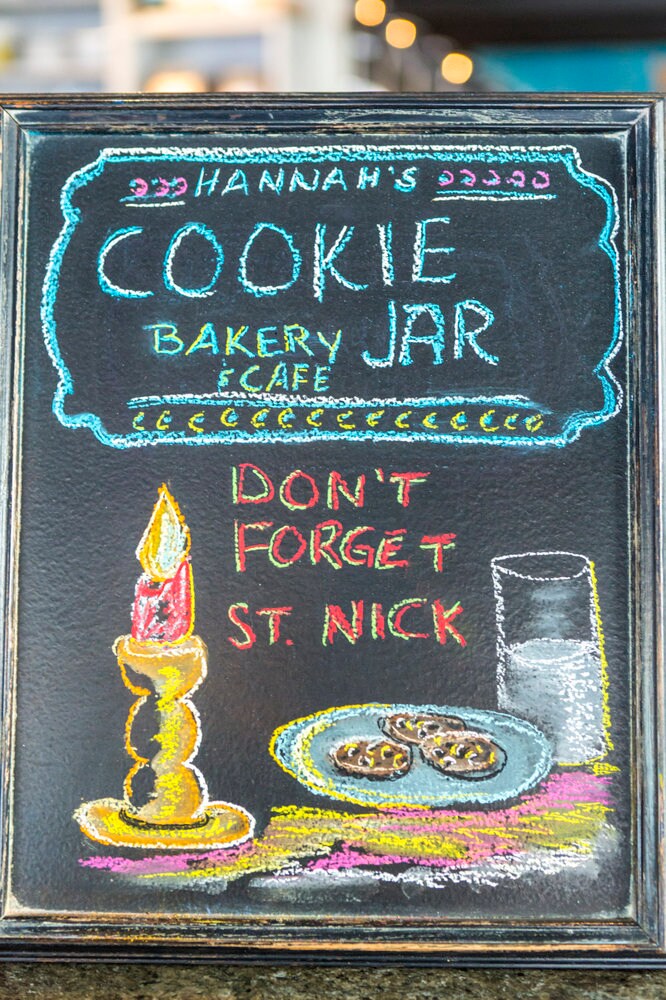 HANNAH'S
COOKIE
BAKERY JAR
& CAFE
DON'T
FORGET
ST. NICK